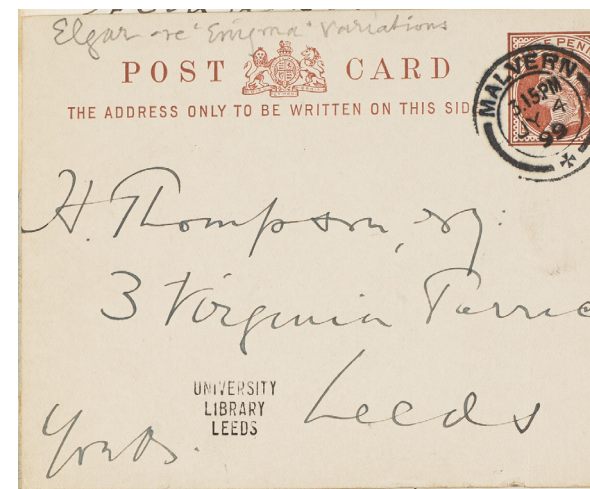 Elgar re "Enigma" Variations
POST CARD
E PENN
THE ADDRESS ONLY TO BE WRITTEN ON THIS SID
MALVERN
3.15PM
JY 4
99
H. Thompson, esq:
3 Virginia Terrac
Leeds
UNIVERSITY
LIBRARY
LEEDS
Yorks.